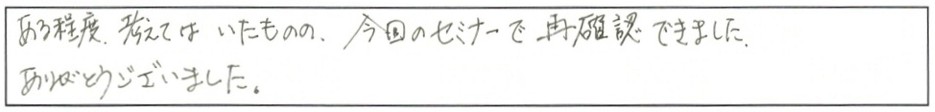 ある程度、考えてはいたものの、今回のセミナーで再確認できました。
ありがとうございました。